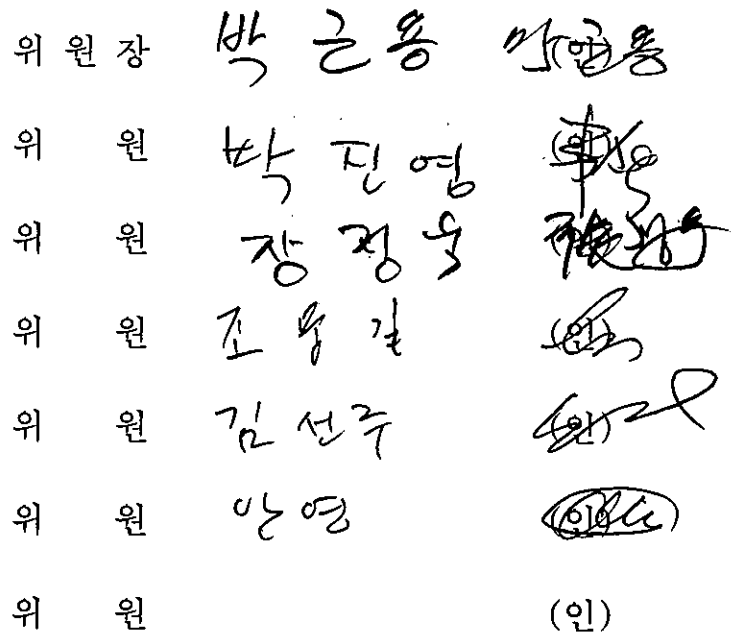 위 원 장 박 근 용 (인) 박근용
위 원 박 진 영 (인)
위 원 장 정 욱 (인)
위 원 조 용 길 (인)
위 원 김 선 주 (인)
위 원 안 연 (인)
위 원 (인)